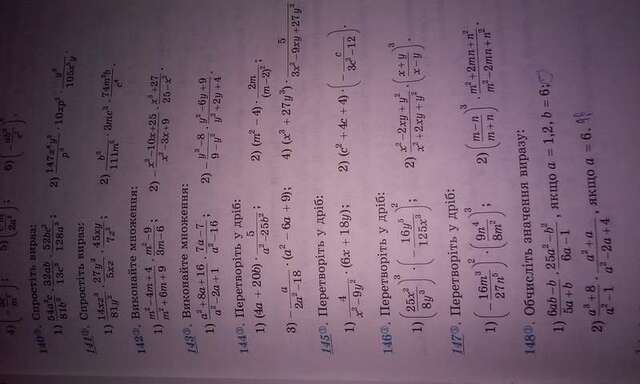 140². Спростіть вираз:
1) 54a²c/81b³ · 32ab/13c² · 52bc²/128a³;
2) 147x⁴y³/p³ · 10xp³ · y²/105x⁵y.
141². Спростіть вираз:
1) 14xz³/81y² · 27y²/5xz · 45xy/7z³;
2) b³/111m⁴ · 3mc³ · 74m³b/c⁴.
142². Виконайте множення:
1) (m²-4m+4)/(m²+6m+9) · (m²-9)/(3m-6);
2) -(x²-10x+25)/(x²-3x+9) · (x³+27)/(25-x²).
143². Виконайте множення:
1) (a²+8a+16)/(a²-2a+1) · (7a-7)/(a²-16);
2) -(y³-8)/(9-y²) · (y²-6y+9)/(y²+2y+4).
144². Перетворіть у дріб:
1) (4a + 20b) · 5/(a²-25b²);
2) (m² - 4) · 2m/(m-2)²;
3) -a/(2a²-18) · (a² - 6a + 9);
4) (x³ + 27y³) · 5/(3x²-9xy+27y²).
145². Перетворіть у дріб:
1) 4/(x²-9y²) · (6x + 18y);
2) (c² + 4c + 4) · (-c/(3c²-12)).
146². Перетворіть у дріб:
1) (25x²/8y³)³ · (-16y⁵/125x³)²;
2) (x²-2xy+y²)/(x²+2xy+y²) · ((x+y)/(x-y))³.
147². Перетворіть у дріб:
1) (-16m³/27n⁵)² · (9n⁴/8m²)³;
2) ((m-n)/(m+n))³ · (m²+2mn+n²)/(m²-2mn+n²).
148². Обчисліть значення виразу:
1) (6ab-b)/(5a+b) · (25a²-b²)/(6a-1), якщо a = 1,2, b = 6;
2) (a³+8)/(a²-1) · (a²+a)/(a²-2a+4), якщо a = 6.